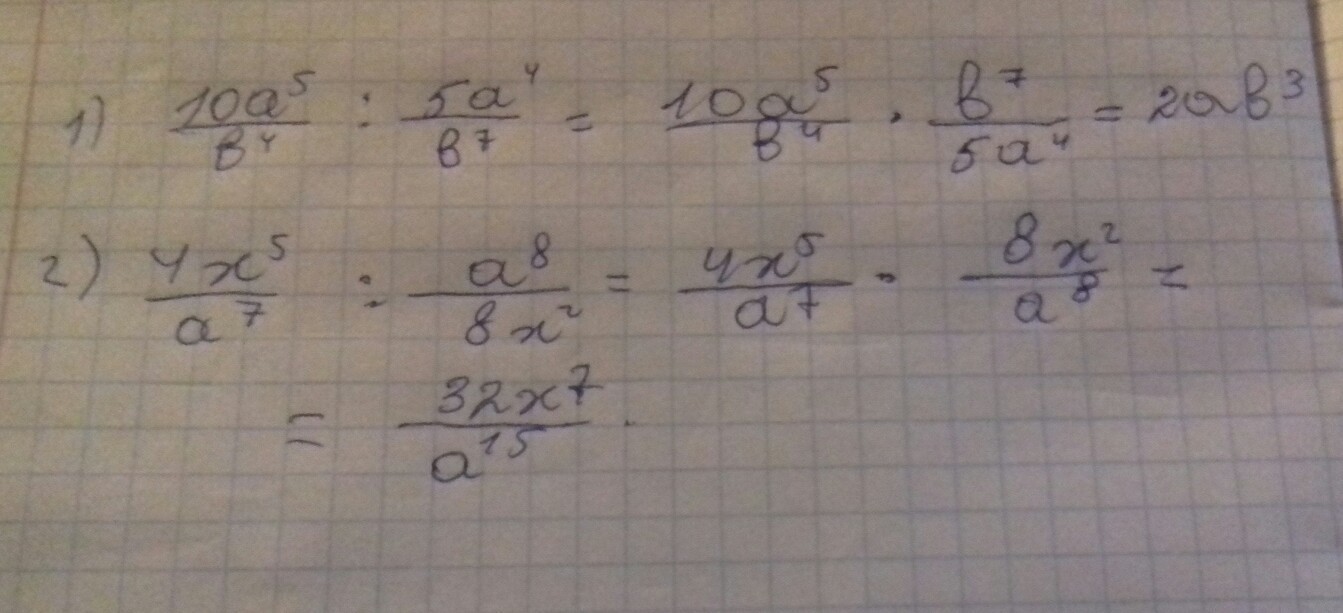 1) 10a⁵/в⁴ : 5a⁴/в⁷ = 10a⁵/в⁴ · в⁷/5a⁴ = 2aв³
2) 4x⁵/a⁷ : a⁸/8x² = 4x⁵/a⁷ · 8x²/a⁸ =
= 32x⁷/a¹⁵.